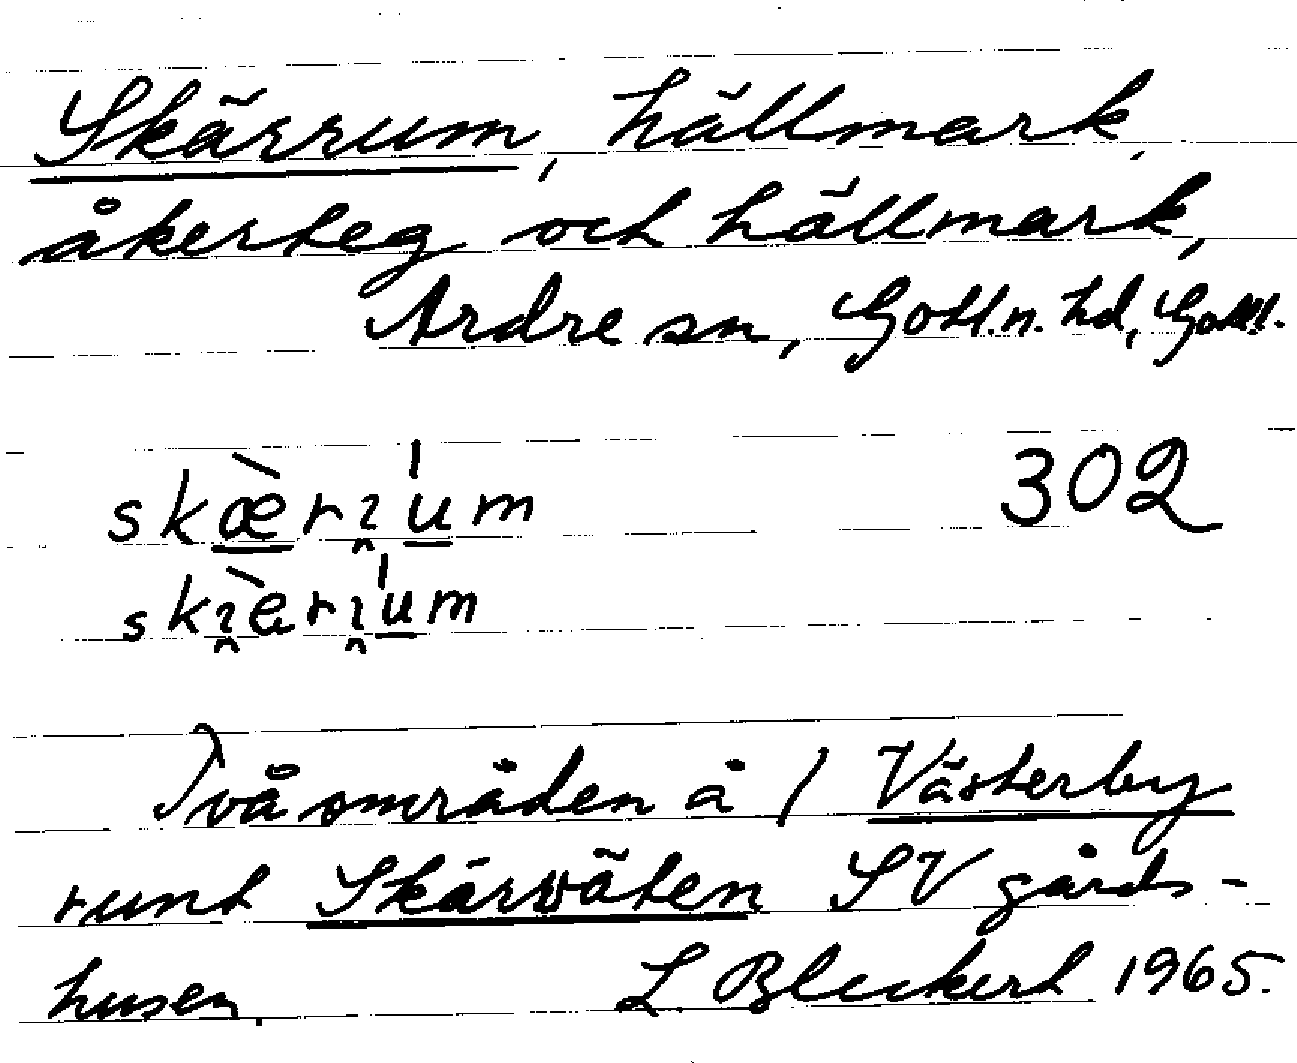 Skärrum, hällmark,
åkerteg och hällmark,
Ardre sn, Gotl.n. hd, Gotl.
302
Två områden å / Västerby
runt Skärväten SV gårds-
husen.
L. Bleckert 1965.